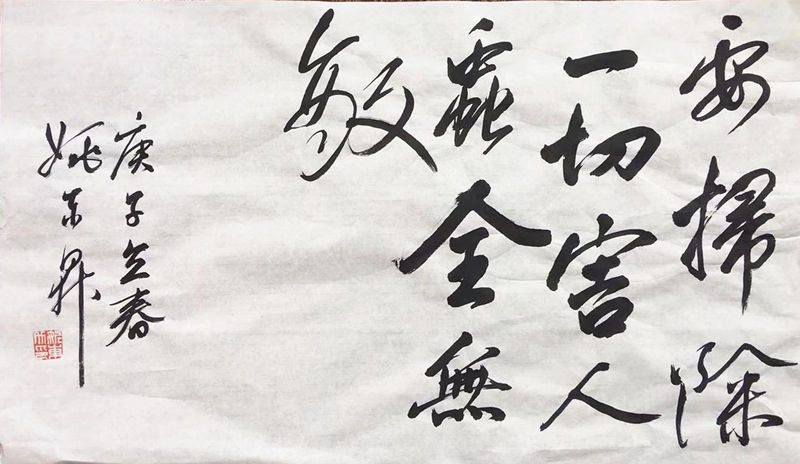 要掃除
一切害人
蟲全無
敵
庚子立春
姚东昇